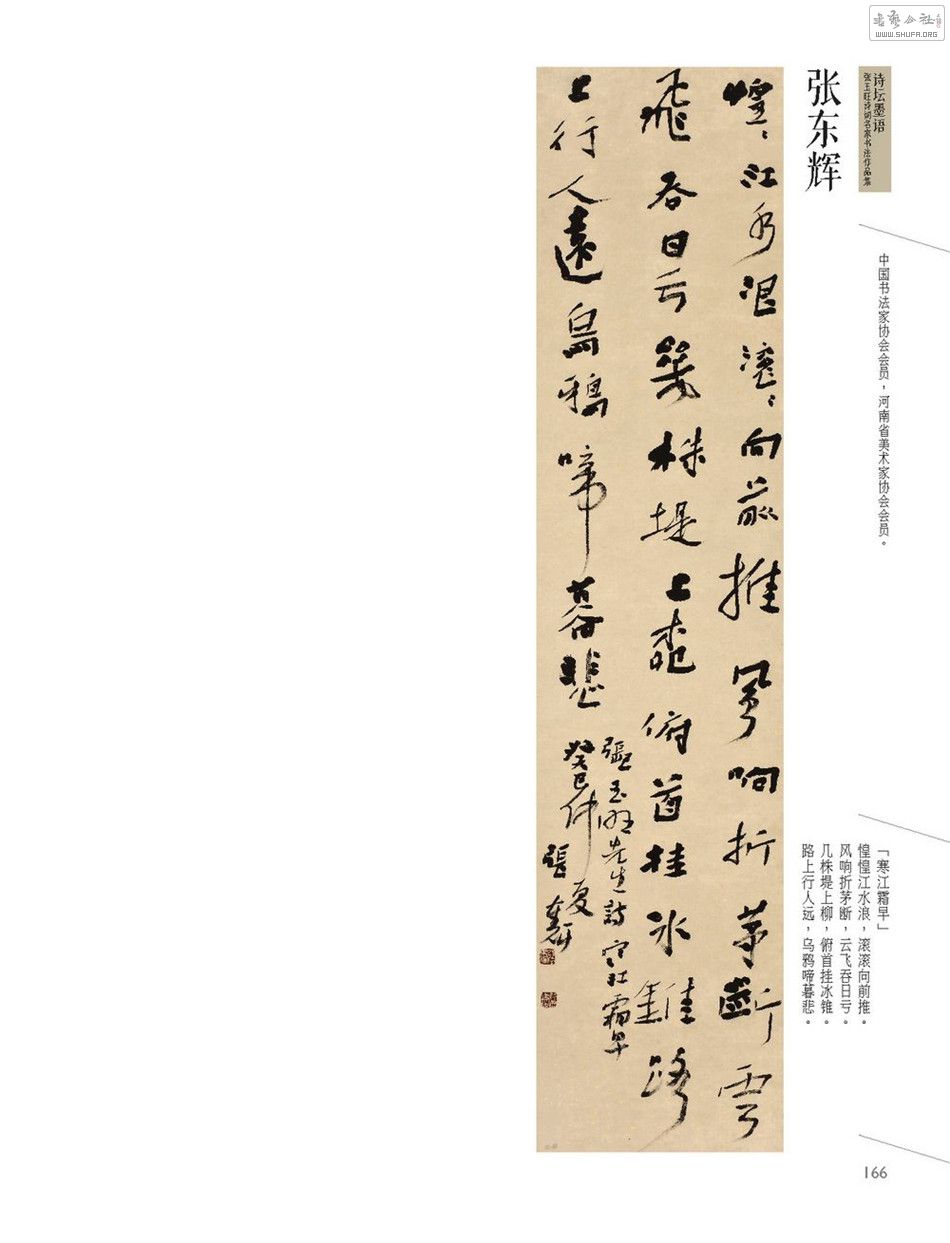 书艺公社
WWW.SHUFA.ORG
诗坛墨语
张玉旺诗词名家书法作品集
张东辉
中国书法家协会会员，河南省美术家协会会员。
惶〻江水浪滚〻向前推風响折茅斷雲
飛吞日亏幾株堤上桺俯首挂冰錐路
上行人遠烏鴉啼暮悲
張玉旺先生詩寒江霜早
癸巳仲夏
張東輝
「寒江霜早」
惶惶江水浪，滚滚向前推。
风响折茅断，云飞吞日亏。
几株堤上柳，俯首挂冰锥。
路上行人远，乌鸦啼暮悲。
166